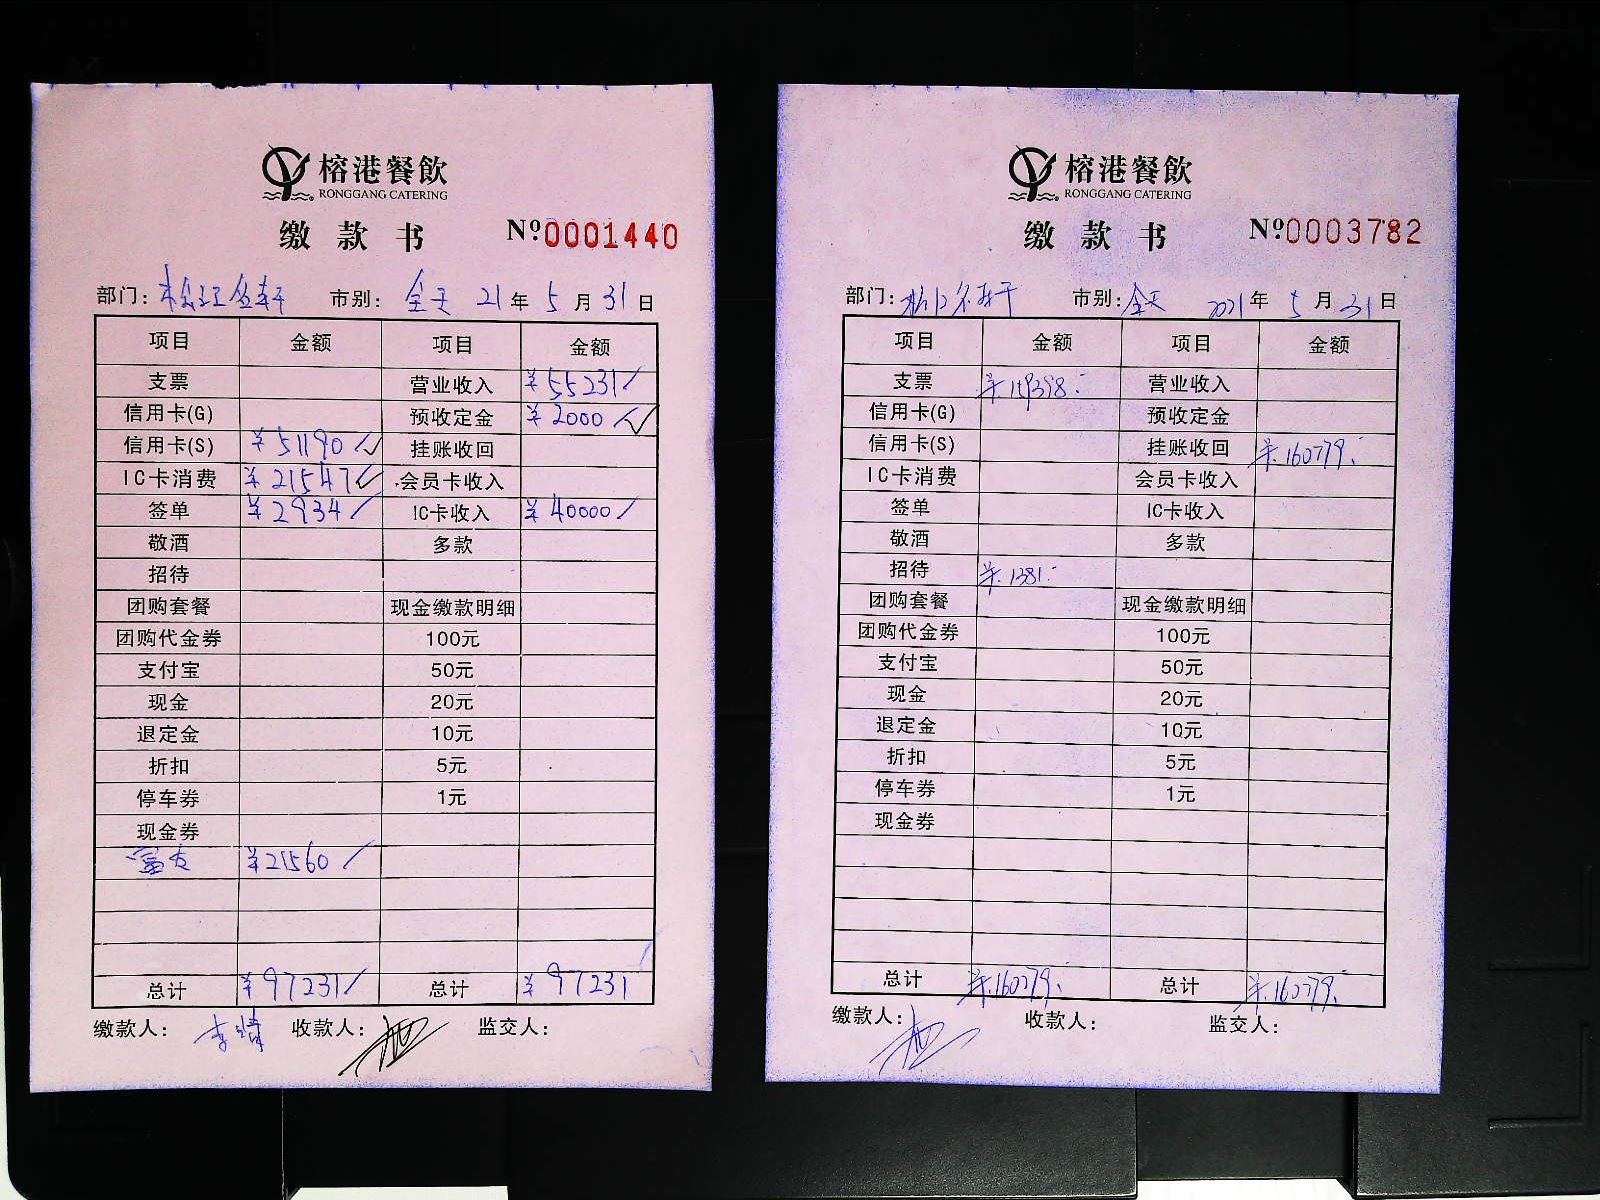 榕港餐飲
RONGGANG CATERING
缴款书 Nº0001440
部门: 松江名轩 市别: 全天 21年 5月 31日
项目 金额 项目 金额
支票 营业收入 ¥55231
信用卡(G) 预收定金 ¥2000
信用卡(S) ¥51190 挂账收回
IC卡消费 ¥21547 会员卡收入
签单 ¥2934 IC卡收入 ¥40000
敬酒 多款
招待
团购套餐 现金缴款明细
团购代金券 100元
支付宝 50元
现金 20元
退定金 10元
折扣 5元
停车券 1元
现金券
富友 ¥21560
总计 ¥97231 总计 ¥97231
缴款人: 收款人: 监交人:
榕港餐飲
RONGGANG CATERING
缴款书 Nº0003782
部门: 松江名轩 市别: 全天 2021年 5月 31日
项目 金额 项目 金额
支票 ¥159398.- 营业收入
信用卡(G) 预收定金
信用卡(S) 挂账收回 ¥160779.-
IC卡消费 会员卡收入
签单 IC卡收入
敬酒 多款
招待 ¥1381.-
团购套餐 现金缴款明细
团购代金券 100元
支付宝 50元
现金 20元
退定金 10元
折扣 5元
停车券 1元
现金券
总计 ¥160779.- 总计 ¥160779.-
缴款人: 收款人: 监交人: